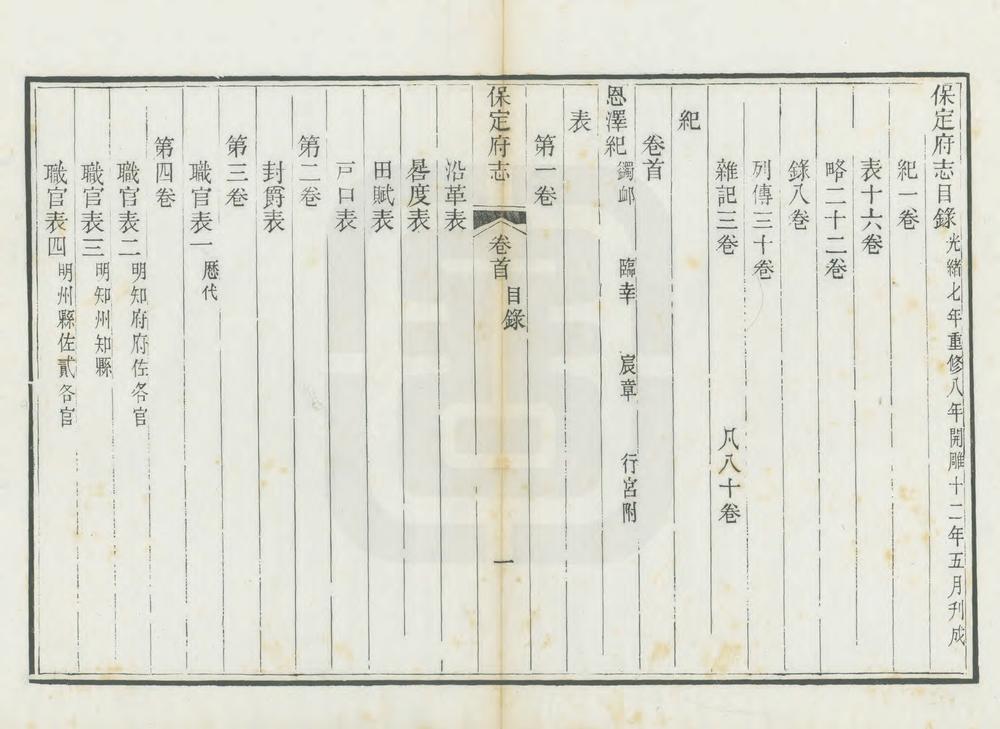 保定府志目錄 光緒七年重修八年開雕十二年五月刋成
紀一卷
表十六卷
略二十二卷
錄八卷
列傳三十卷
雜記三卷 凡八十卷
紀
卷首
恩澤紀 蠲䘏 臨幸 宸章 行宮附
表
第一卷
保定府志 卷首 目錄 一
沿革表
晷度表
田賦表
戸口表
第二卷
封爵表
第三卷
職官表一 歷代
第四卷
職官表二 明知府府佐各官
職官表三 明知州知縣
職官表四 明州縣佐貳各官